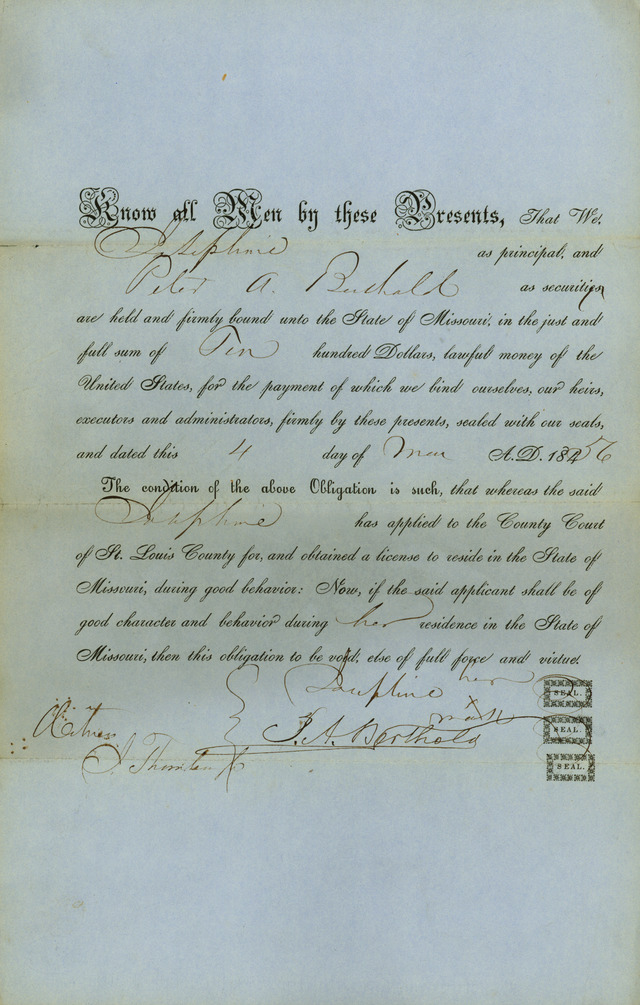 Know all Men by these Presents, That We,
Josephine as principal, and
Peter A. Berthold as securities
are held and firmly bound unto the State of Missouri, in the just and
full sum of Ten hundred Dollars, lawful money of the
United States, for the payment of which we bind ourselves, our heirs,
executors and administrators, firmly by these presents, sealed with our seals,
and dated this 4 day of A.D. 1856
The condition of the above Obligation is such, that whereas the said
Josephine has applied to the County Court
of St. Louis County for, and obtained a license to reside in the State of
Missouri, during good behavior: Now, if the said applicant shall be of
good character and behavior during her residence in the State of
Missouri, then this obligation to be void, else of full force and virtue.
Josephine her x mark SEAL.
Witness P. A. Berthold SEAL.
J. Thornton SEAL.